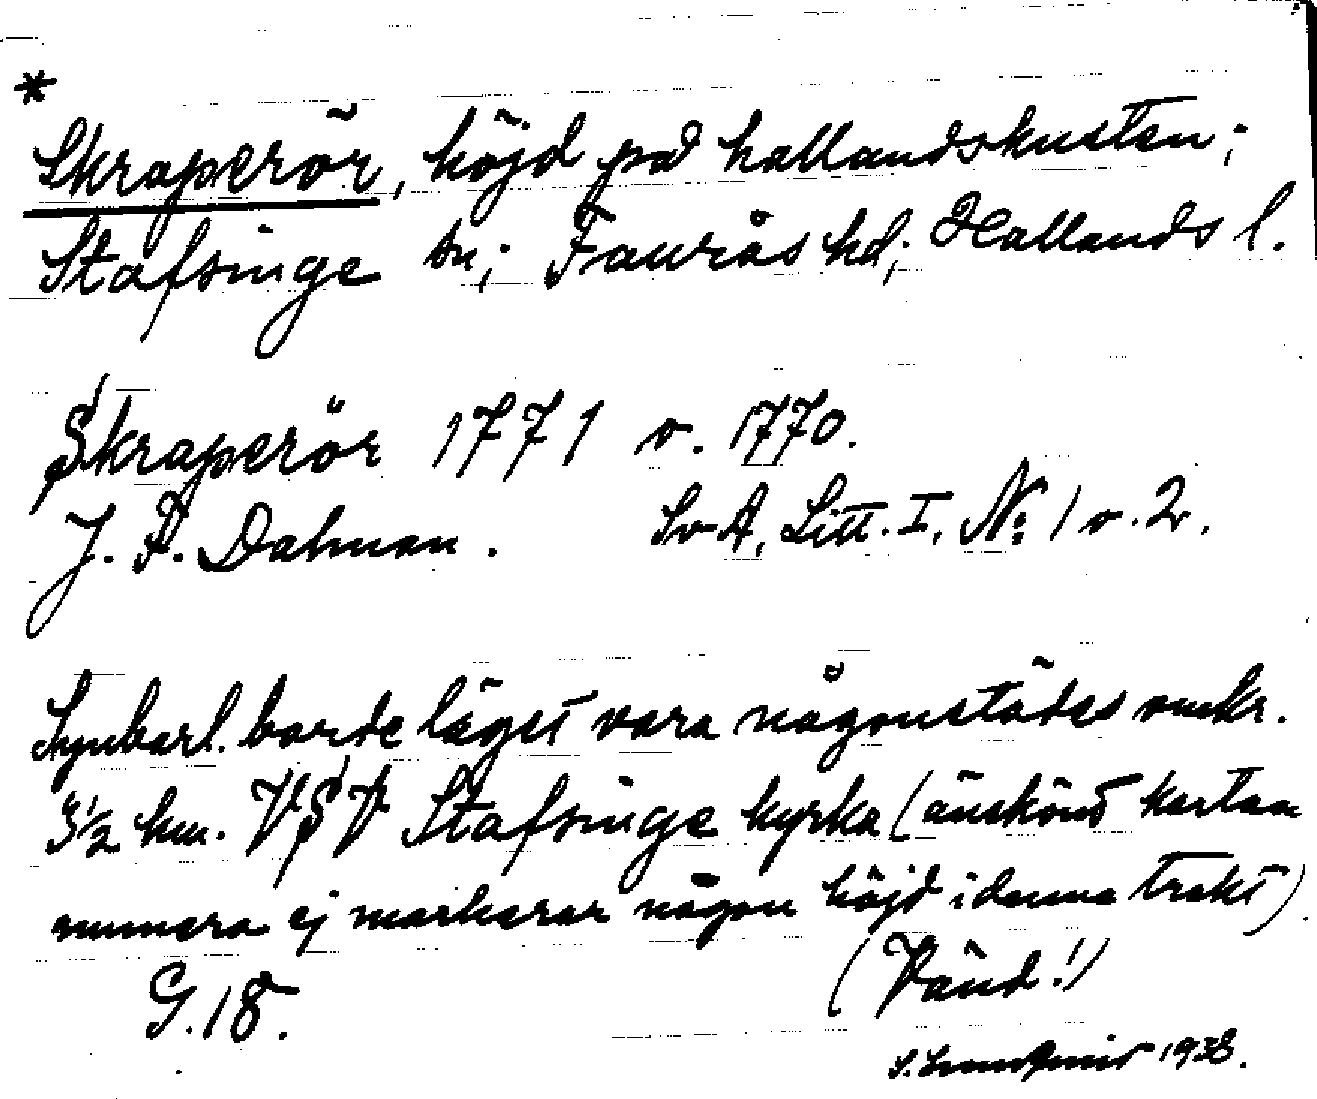 *
Skraperör, höjd på hallandskusten;
Stafsinge sn; Faurås hd; Hallands l.
Skraperör 1771 o. 1770.
J. P. Dahman. Sv A, Litt. I, No: 1 o. 2.
Synbarl. borde läget vara någonstädes omkr.
3 1/2 km. VSV Stafsinge kyrka (änskönt kartan
numera ej markerar någon höjd i denna trakt)
G. 18. (Vänd!)
1938.